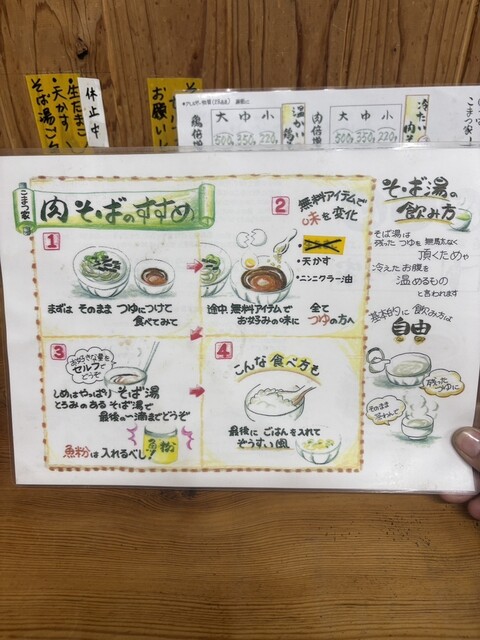 休止中
・生たまご
・天かす
そば湯ご
お願いし
大 中 小
500g 350g 220g
温かい
鶏
鶏倍増
大 中 小
500g 350g 220g
冷たい
肉そ
肉倍増
こまつ家
こまつ家
肉そばのすすめ
1
まずは そのまま つゆにつけて
食べてみて
2
無料アイテムで
味を変化
・天かす
・ニンニクラー油
途中 無料アイテムで
お好みの味に
全て
つゆの方へ
3
お好きな量を
セルフで
どうぞ
しめはやっぱり そば湯
とろみのある そば湯で
最後の一滴までどうぞ
魚粉は入れるべし!
魚粉
4
こんな食べ方も
最後に ごはんを入れて
ぞうすい風
そば湯の
飲み方
そば湯は
残ったつゆを 無駄なく
頂くためや
冷えたお腹を
温めるもの
と言われます
基本的に 飲み方は
自由
残った
つゆに
そのまま
茶わんで